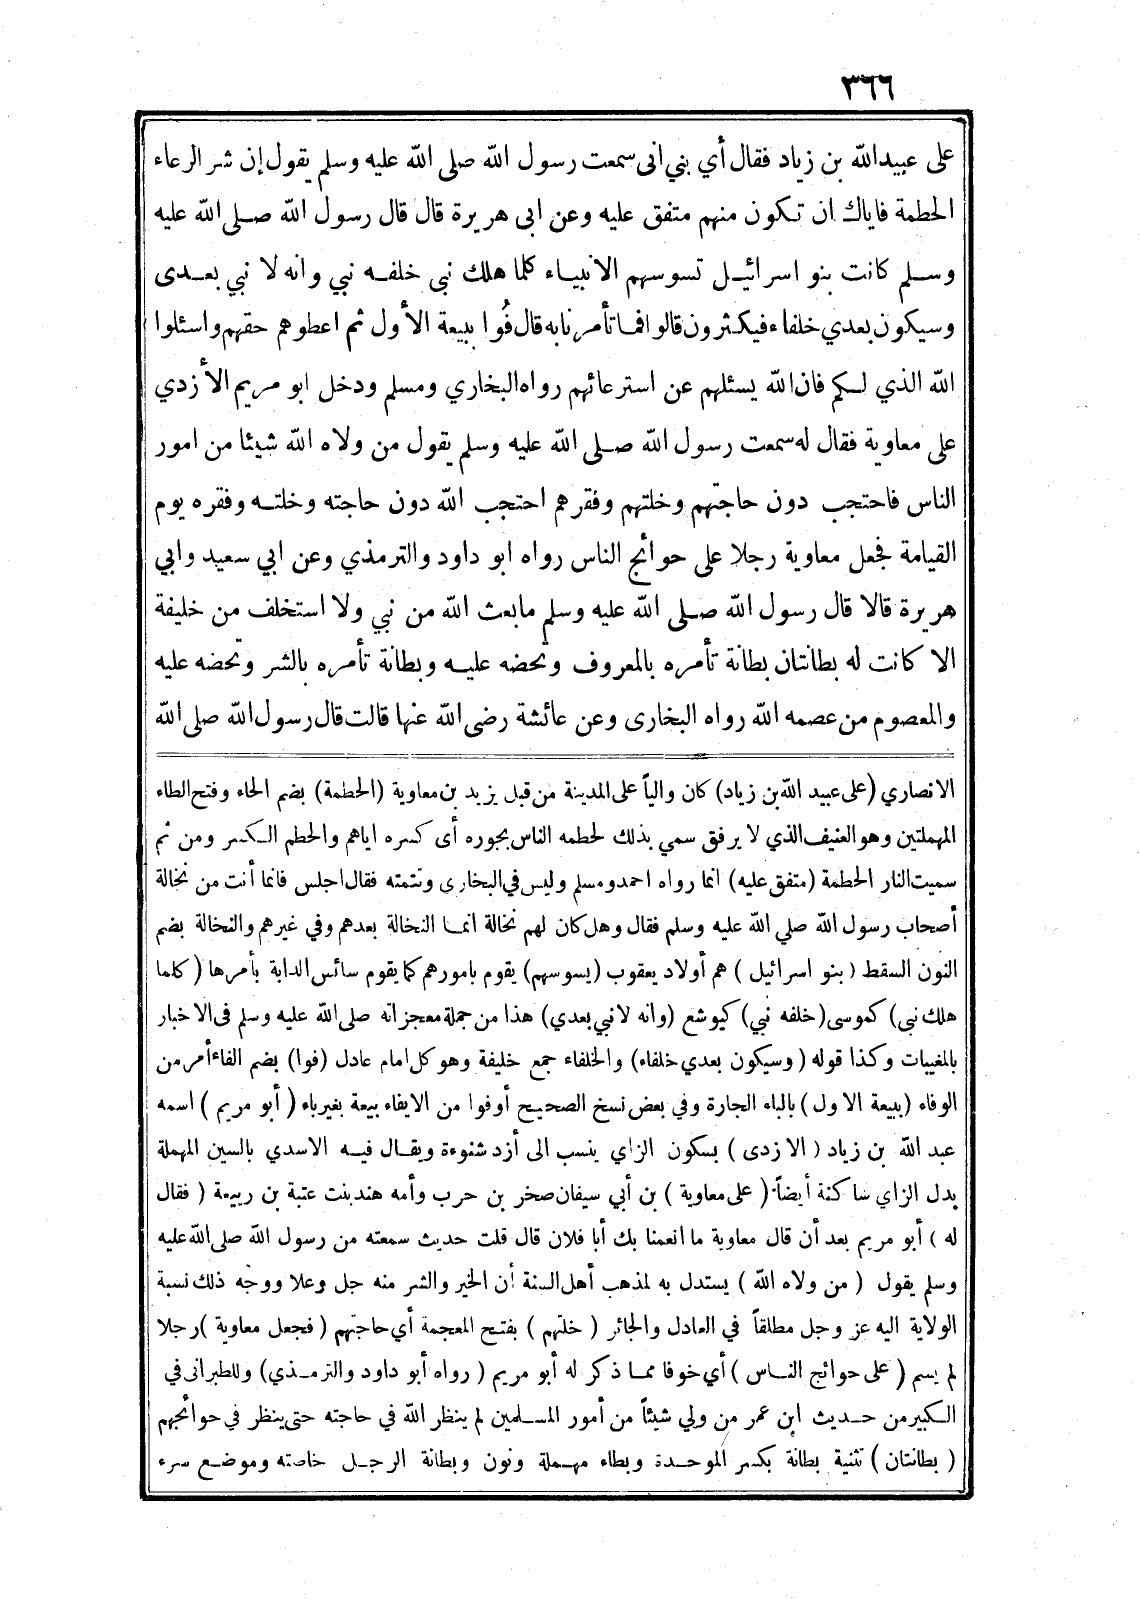 ٣٦٦
على عبيدالله بن زياد فقال أي بني انى سمعت رسول الله صلى الله عليه وسلم يقول إن شر الرعاء
الحطمة فاياك ان تكون منهم متفق عليه وعن ابى هريرة قال قال رسول الله صلى الله عليه
وسلم كانت بنو اسرائيل تسوسهم الانبياء كلما هلك نبى خلفه نبي وانه لا نبي بعدى
وسيكون بعدي خلفاء فيكثرون قالوا فما تأمرنا به قال فُوا ببيعة الأول ثم اعطوهم حقهم واسئلوا
الله الذي لكم فان الله يسئلهم عن استرعائهم رواه البخاري ومسلم ودخل ابو مريم الأزدي
على معاوية فقال له سمعت رسول الله صلى الله عليه وسلم يقول من ولاه الله شيئا من امور
الناس فاحتجب دون حاجتهم وخلتهم وفقرهم احتجب الله دون حاجته وخلته وفقره يوم
القيامة فجعل معاوية رجلا على حوائج الناس رواه ابو داود والترمذي وعن ابي سعيد وابي
هريرة قالا قال رسول الله صلى الله عليه وسلم مابعث الله من نبي ولا استخلف من خليفة
الا كانت له بطانتان بطانة تأمره بالمعروف وتحضه عليه وبطانة تأمره بالشر وتحضه عليه
والمعصوم من عصمه الله رواه البخارى وعن عائشة رضى الله عنها قالت قال رسول الله صلى الله
الانصاري (على عبيد الله بن زياد) كان والياً على المدينة من قبل يزيد بن معاوية (الحطمة) بضم الحاء وفتح الطاء
المهملتين وهو العنيف الذي لا يرفق سمي بذلك لحطمه الناس بجوره أى كسره اياهم والحطم الكسر ومن ثم
سميت النار الحطمة (متفق عليه) انما رواه احمد ومسلم وليس في البخارى وتتمته فقال اجلس فانما أنت من نخالة
أصحاب رسول الله صلي الله عليه وسلم فقال وهل كان لهم نخالة انما النخالة بعدهم وفي غيرهم والنخالة بضم
النون السقط (بنو اسرائيل) هم أولاد يعقوب (يسوسهم) يقوم بامورهم كما يقوم سائس الدابة بأمرها (كلما
هلك نبى) كموسى (خلفه نبي) كيوشع (وانه لانبي بعدي) هذا من جملة معجزاته صلى الله عليه وسلم فى الاخبار
بالمغيبات وكذا قوله (وسيكون بعدي خلفاء) والخلفاء جمع خليفة وهو كل امام عادل (فوا) بضم الفاء أمر من
الوفاء (ببيعة الاول) بالباء الجارة وفي بعض نسخ الصحيح أوفوا من الايفاء بيعة بغير باء (أبو مريم) اسمه
عبد الله بن زياد (الازدى) بسكون الزاي ينسب الى أزد شنوءة ويقال فيه الاسدي بالسين المهملة
بدل الزاي ساكنة أيضاً (على معاوية) بن أبي سيفان صخر بن حرب وأمه هند بنت عتبة بن ربيعة (فقال
له) أبو مريم بعد أن قال معاوية ما انعمنا بك أبا فلان قال قلت حديث سمعته من رسول الله صلى الله عليه
وسلم يقول (من ولاه الله) يستدل به لمذهب أهل السنة أن الخير والشر منه جل وعلا ووجه ذلك نسبة
الولاية اليه عز وجل مطلقاً في العادل والجائر (خلتهم) بفتح المعجمة أي حاجتهم (فجعل معاوية) رجلا
لم يسم (على حوائج الناس) أي خوفا مما ذكر له أبو مريم (رواه أبو داود والترمذي) وللطبرانى في
الكبير من حديث ابن عمر من ولي شيئاً من أمور المسلمين لم ينظر الله في حاجته حتى ينظر في حوائجهم
(بطانتان) تثنية بطانة بكسر الموحدة وبطاء مهملة ونون وبطانة الرجل خاصته وموضع سره